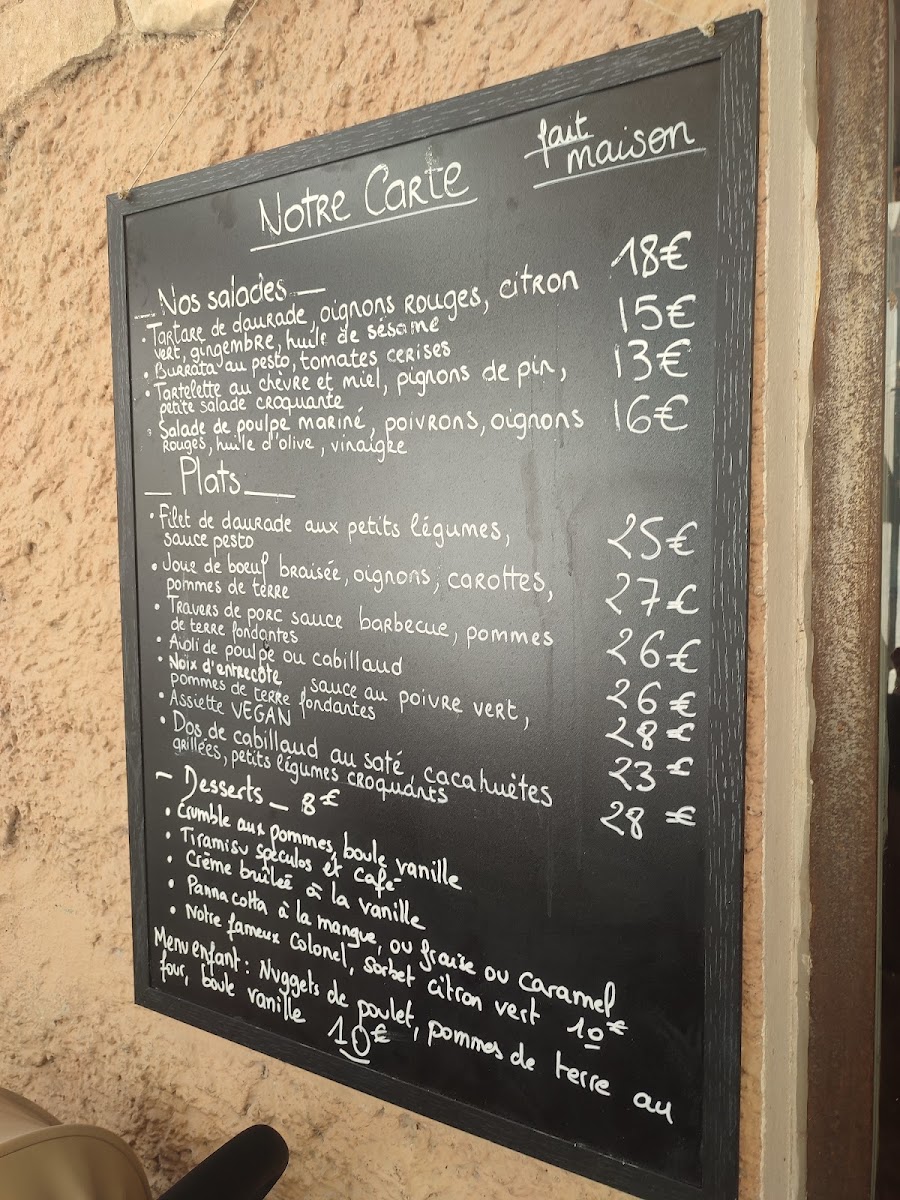 Notre Carte
fait
maison
Nos salades
• Tartare de daurade, oignons rouges, citron 18€
vert, gingembre, huile de sésame
• Burrata au pesto, tomates cerises 15€
• Tartelette au chèvre et miel, pignons de pin, 13€
petite salade croquante
• Salade de poulpe mariné, poivrons, oignons 16€
rouges, huile d'olive, vinaigre
Plats
• Filet de daurade aux petits légumes, 25€
sauce pesto
• Joue de boeuf braisée, oignons, carottes, 27€
pommes de terre
• Travers de porc sauce barbecue, pommes 26€
de terre fondantes
• Aïoli de poulpe ou cabillaud 26€
• Noix d'entrecôte sauce au poivre vert, 28€
pommes de terre fondantes
• Assiette VEGAN 23€
• Dos de cabillaud au saté, cacahuètes 28€
grillées, petits légumes croquants
- Desserts - 8€
• Crumble aux pommes, boule vanille
• Tiramisu spéculos et café
• Crème brûleé à la vanille
• Panna cotta à la mangue, ou fraise ou caramel
• Notre fameux Colonel, sorbet citron vert 10€
Menu enfant : Nuggets de poulet, pommes de terre au
four, boule vanille 10€